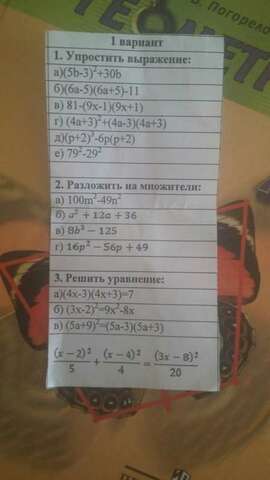 В. Погорело
ГЕОМЕТ
1 вариант
1. Упростить выражение:
а)(5b-3)²+30b
б)(6a-5)(6a+5)-11
в) 81-(9x-1)(9x+1)
г) (4a+3)²+(4a-3)(4a+3)
д)(p+2)³-6p(p+2)
е) 79²-29²
2. Разложить на множители:
а) 100m⁴-49n²
б) a² + 12a + 36
в) 8b³ − 125
г) 16p² − 56p + 49
3. Решить уравнение:
а)(4x-3)(4x+3)=7
б) (3x-2)²=9x²-8x
в) (5a+9)²=(5a-3)(5a+3)
(x − 2)²/5 + (x − 4)²/4 = (3x − 8)²/20